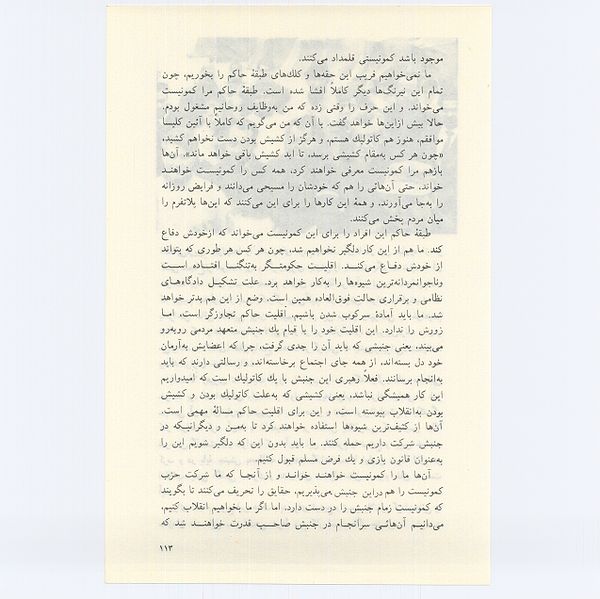 موجود باشد کمونیستی قلمداد می‌کنند.
ما نمی‌خواهیم فریب این حقه‌ها و کلک‌های طبقهٔ حاکم را بخوریم، چون
تمام این نیرنگ‌ها دیگر کاملاً افشا شده است. طبقهٔ حاکم مرا کمونیست
می‌خواند. و این حرف را وقتی زده که من به‌وظایف روحانیم مشغول بودم.
حالا بیش ازاین‌ها خواهد گفت. با آن که من می‌گویم که کاملاً با آئین کلیسا
موافقم، هنوز هم کاتولیك هستم، و هرگز از کشیش بودن دست نخواهم کشید،
«چون هر کس به‌مقام کشیشی برسد، تا ابد کشیش باقی خواهد ماند». آن‌ها
بازهم مرا کمونیست معرفی خواهند کرد، همه کس را کمونیست خواهند
خواند، حتی آن‌هائی را هم که خودشان را مسیحی می‌دانند و فرایض روزانه
را به‌جا می‌آورند، و همهٔ این کارها را برای این می‌کنند که این‌ها پلاتفرم را
میان مردم پخش می‌کنند.
طبقهٔ حاکم این افراد را برای این کمونیست می‌خواند که ازخودش دفاع
کند. ما هم از این کار دلگیر نخواهیم شد، چون هر کس هر طوری که بتواند
از خودش دفاع می‌کند. اقلیت حکومتگر به‌تنگنا افتاده است
وناجوانمردانه‌ترین شیوه‌ها را به‌کار خواهد برد. علت تشکیل دادگاه‌های
نظامی و برقراری حالت فوق‌العاده همین است. وضع از این هم بدتر خواهد
شد. ما باید آمادهٔ سرکوب شدن باشیم. اقلیت حاکم تجاوزگر است، اما
زورش را ندارد. این اقلیت خود را با قیام یك جنبش متعهد مردمی روبه‌رو
می‌بیند، یعنی جنبشی که باید آن را جدی گرفت، چرا که اعضایش به‌آرمان
خود دل بسته‌اند، از همه جای اجتماع برخاسته‌اند، و رسالتی دارند که باید
به‌انجام برسانند. فعلاً رهبری این جنبش با یك کاتولیك است که امیدواریم
این کار همیشگی نباشد، یعنی کشیشی که به‌علت کاتولیك بودن و کشیش
بودن به‌انقلاب پیوسته است، و این برای اقلیت حاکم مسألهٔ مهمی است.
آن‌ها از کثیف‌ترین شیوه‌ها استفاده خواهند کرد تا به‌من و دیگرانیکه در
جنبش شرکت داریم حمله کنند. ما باید بدون این که دلگیر شویم این را
به‌عنوان قانون بازی و یك فرض مسلم قبول کنیم.
آن‌ها ما را کمونیست خواهند خواند و از آنجا که ما شرکت حزب
کمونیست را هم دراین جنبش می‌پذیریم، حقایق را تحریف می‌کنند تا بگویند
که کمونیست زمام جنبش را در دست دارد. اما اگر ما بخواهیم انقلاب کنیم،
می‌دانیم آن‌هائی سرانجام در جنبش صاحب قدرت خواهند شد که
۱۱۳